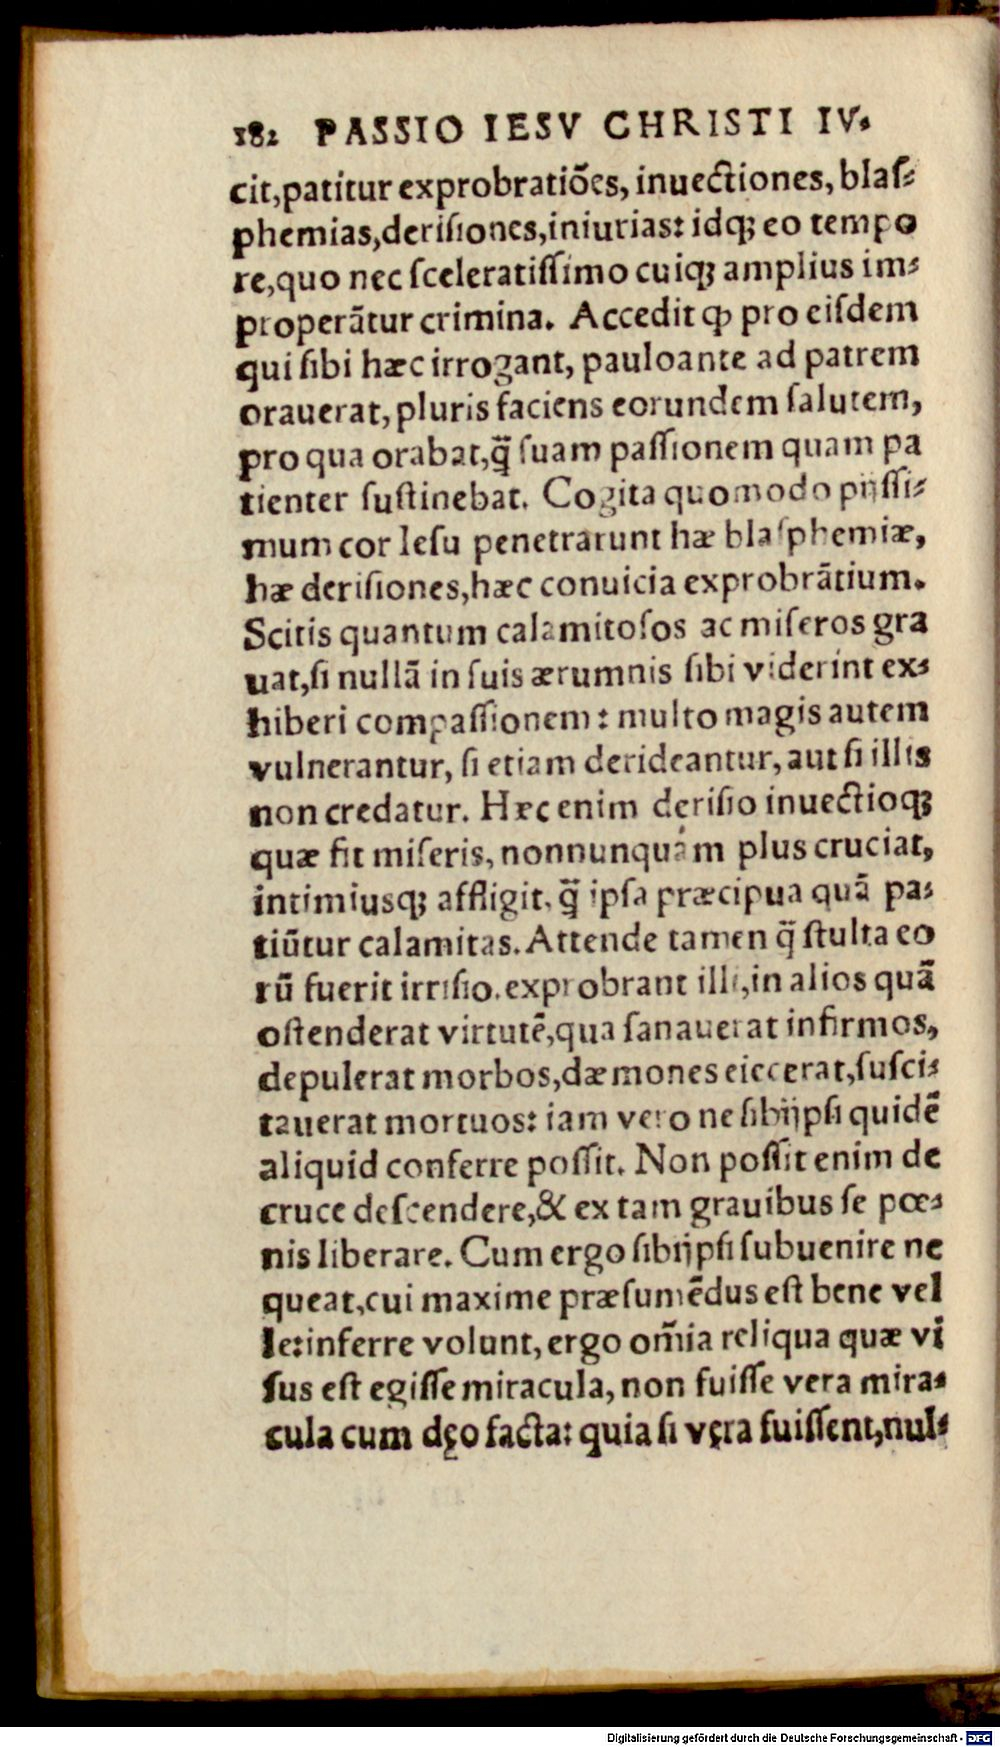 182 PASSIO IESV CHRISTI IV.
cit,patitur exprobratiões, inuectiones, blaſ⸗
phemias,deriſiones,iniurias: idq; eo tempo
re,quo nec ſceleratiſſimo cuiq; amplius im⸗
properãtur crimina. Accedit ꝙ pro eiſdem
qui ſibi hæc irrogant, pauloante ad patrem
orauerat, pluris faciens eorundem ſalutem,
pro qua orabat,q̃ ſuam paſſionem quam pa
tienter ſuſtinebat. Cogita quomodo pijſſi⸗
mum cor Ieſu penetrarunt hæ blaſphemiæ,
hæ deriſiones,hæc conuicia exprobrãtium.
Scitis quantum calamitoſos ac miſeros gra
uat,ſi nullã in ſuis ærumnis ſibi viderint ex⸗
hiberi compaſſionem: multo magis autem
vulnerantur, ſi etiam derideantur, aut ſi illis
non credatur. Hæc enim deriſio inuectioq;
quæ fit miſeris, nonnunquám plus cruciat,
intimiusq; affligit, q̃ ipſa præcipua quã pa⸗
tiũtur calamitas. Attende tamen q̃ ſtulta eo
rũ fuerit irriſio. exprobrant illi,in alios quã
oſtenderat virtutẽ,qua ſanauerat infirmos,
depulerat morbos,dæmones eiecerat,ſuſci⸗
tauerat mortuos: iam vero ne ſibijpſi quidẽ
aliquid conferre poſſit. Non poſſit enim de
cruce deſcendere,& ex tam grauibus ſe pœ⸗
nis liberare. Cum ergo ſibijpſi ſubuenire ne
queat,cui maxime præſumẽdus eſt bene vel
le:inferre volunt, ergo om̃ia reliqua quæ vi
ſus eſt egiſſe miracula, non fuiſſe vera mira⸗
cula cum dęo facta: quia ſi vęra fuiſſent,nul⸗
Digitalisierung gefördert durch die Deutsche Forschungsgemeinschaft - DFG